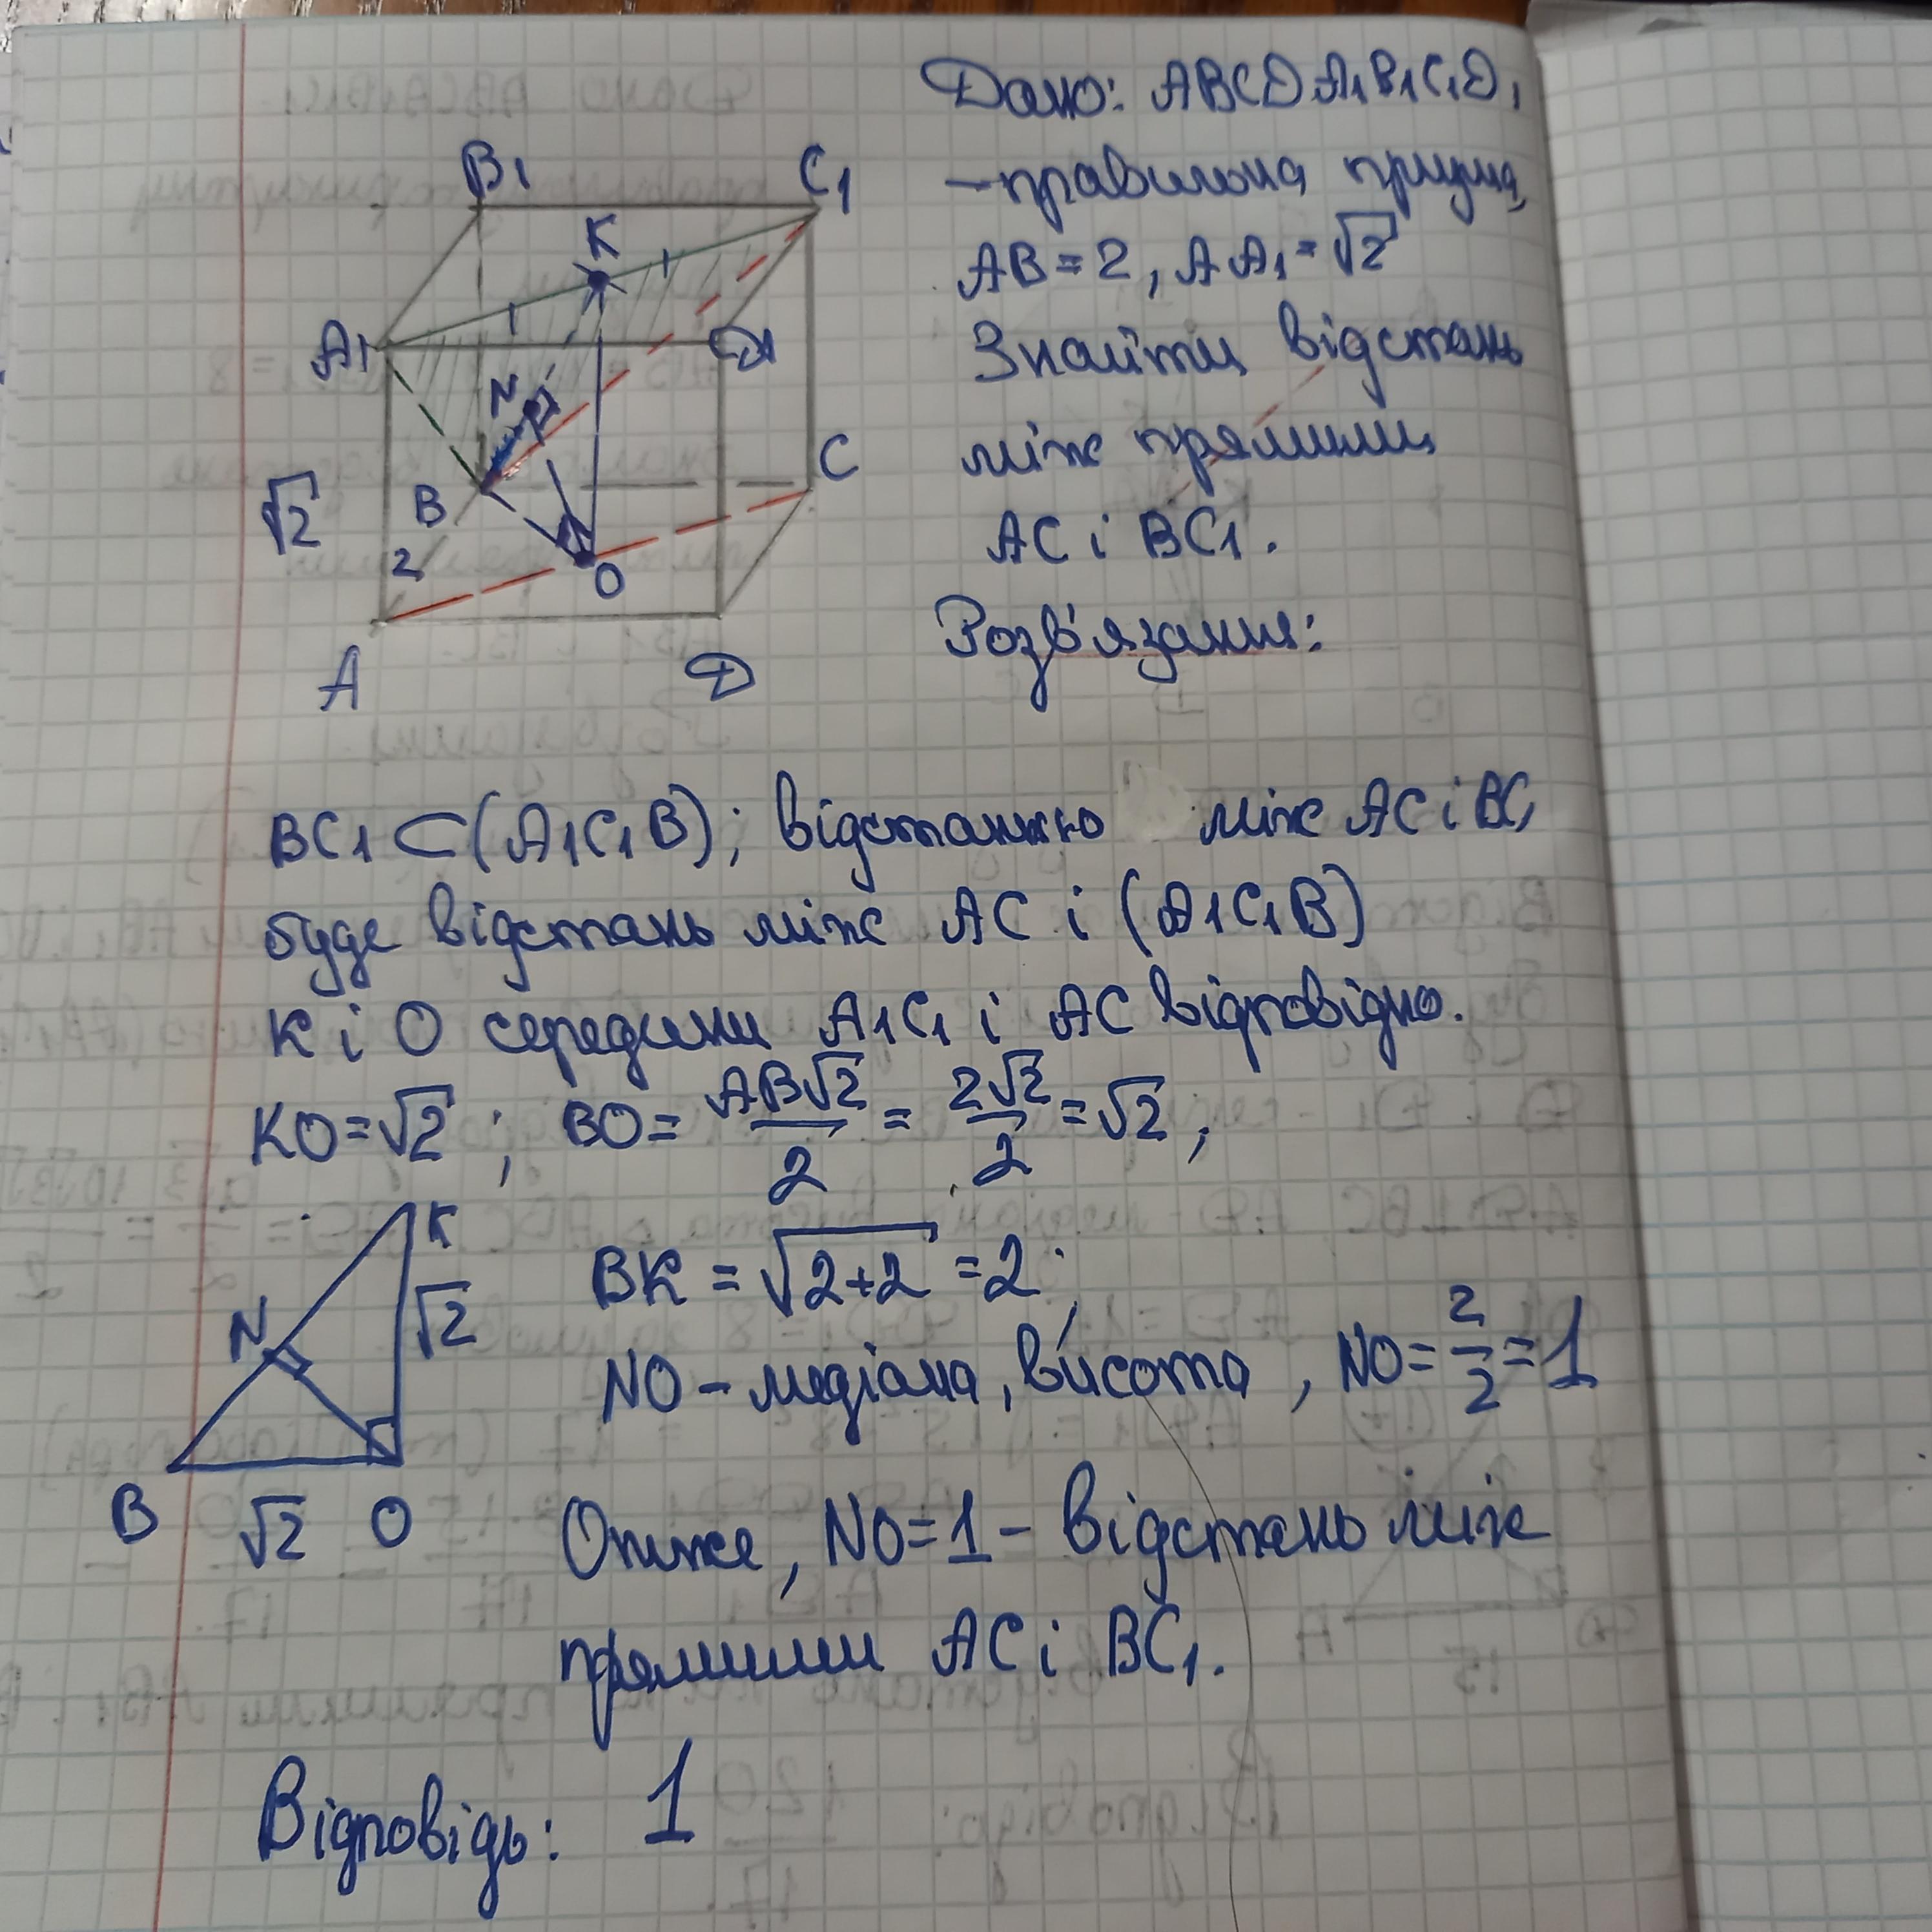 Дано: ABCDA1B1C1D1
- правильна призма,
AB = 2, AA1 = √2
Знайти відстань
між прямими
AC і BC1.
Розв'язання:
B1
C1
K
A1
D1
N
C
B
√2
2
O
A
D
BC1 ⊂ (A1C1B); відстанню між AC і BC1
буде відстань між AC і (A1C1B)
K і O середини A1C1 і AC відповідно.
KO = √2 ; BO = AB√2/2 = 2√2/2 = √2 ;
K
BK = √2+2 = 2 ;
√2
N
NO - медіана, висота , NO = 2/2 = 1
B √2 O
Отже, NO = 1 - відстань між
прямими AC і BC1.
Відповідь: 1